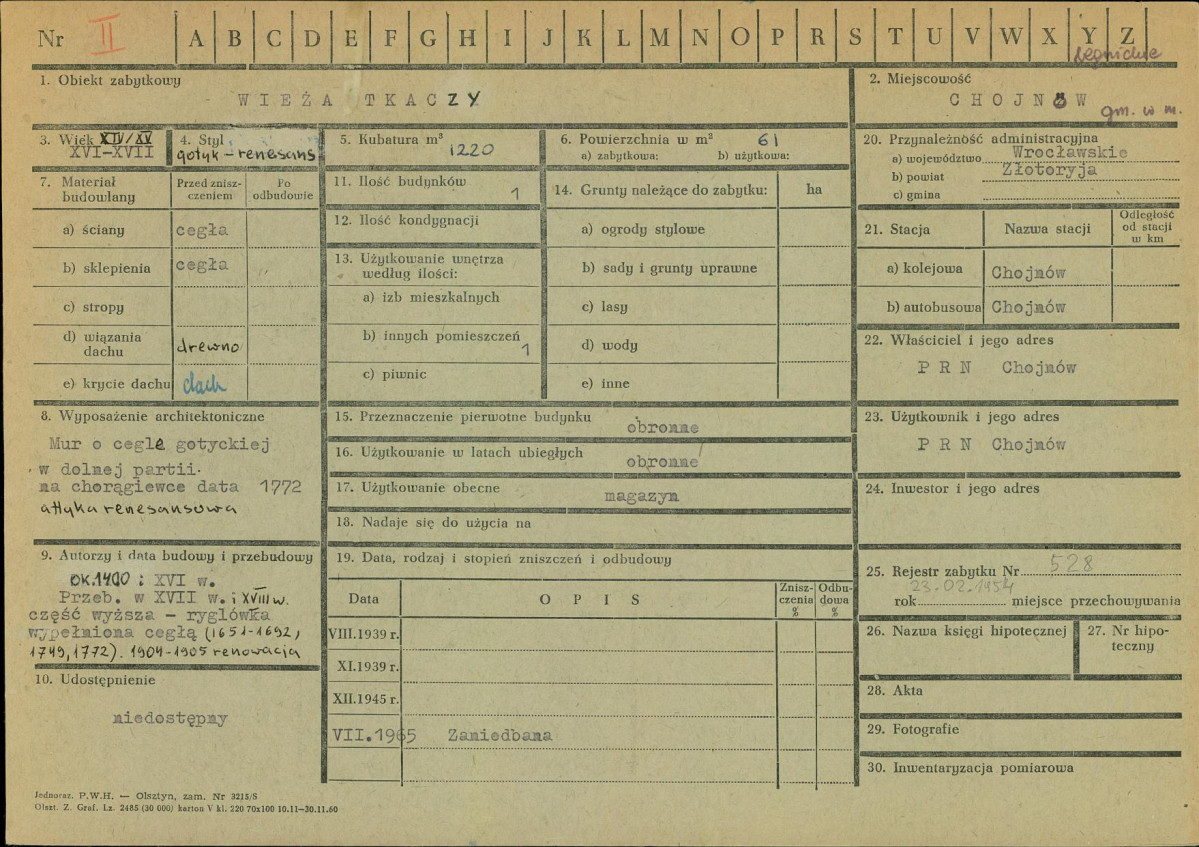 Nr II A B C D E F G H I J K L M N O P R S T U V W X Y Z
legnickie
1. Obiekt zabytkowy
WIEŻA TKACZY
2. Miejscowość
CHOJNÓW
gm. w m.
3. Wiek XIV/XV
XVI-XVII
4. Styl
gotyk - renesans
5. Kubatura m³
1220
6. Powierzchnia w m² 61
a) zabytkowa: b) użytkowa:
7. Materiał budowlany
Przed zniszczeniem
Po odbudowie
a) ściany cegła
b) sklepienia cegła
c) stropy
d) wiązania dachu drewno
e) krycie dachu dach
8. Wyposażenie architektoniczne
Mur o cegle gotyckiej
w dolnej partii.
na chorągiewce data 1772
attyka renesansowa
9. Autorzy i data budowy i przebudowy
OK.1400 i XVI w.
Przeb. w XVII w. i XVIII w.
część wyższa - ryglówka
wypełniona cegłą (1651-1692,
1749, 1772). 1904-1905 renowacja
10. Udostępnienie
niedostępny
11. Ilość budynków
1
12. Ilość kondygnacji
13. Użytkowanie wnętrza
według ilości:
a) izb mieszkalnych
b) innych pomieszczeń
1
c) piwnic
14. Grunty należące do zabytku: ha
a) ogrody stylowe
b) sady i grunty uprawne
c) lasy
d) wody
e) inne
15. Przeznaczenie pierwotne budynku
obronne
16. Użytkowanie w latach ubiegłych
obronne
17. Użytkowanie obecne
magazyn
18. Nadaje się do użycia na
19. Data, rodzaj i stopień zniszczeń i odbudowy
Data OPIS Zniszczenia % Odbudowa %
VIII.1939 r.
XI.1939 r.
XII.1945 r.
VII.1965 Zaniedbana
20. Przynależność administracyjna
a) województwo Wrocławskie
b) powiat Złotoryja
c) gmina
21. Stacja Nazwa stacji Odległość od stacji w km
a) kolejowa Chojnów
b) autobusowa Chojnów
22. Właściciel i jego adres
PRN Chojnów
23. Użytkownik i jego adres
PRN Chojnów
24. Inwestor i jego adres
25. Rejestr zabytku Nr 528
23.02.1954
rok miejsce przechowywania
26. Nazwa księgi hipotecznej
27. Nr hipoteczny
28. Akta
29. Fotografie
30. Inwentaryzacja pomiarowa
Jednoraz. P.W.H. — Olsztyn, zam. Nr 3215/S
Olszt. Z. Graf. Lz. 2485 (30 000) karton V kl. 220 70x100 10.11—30.11.60